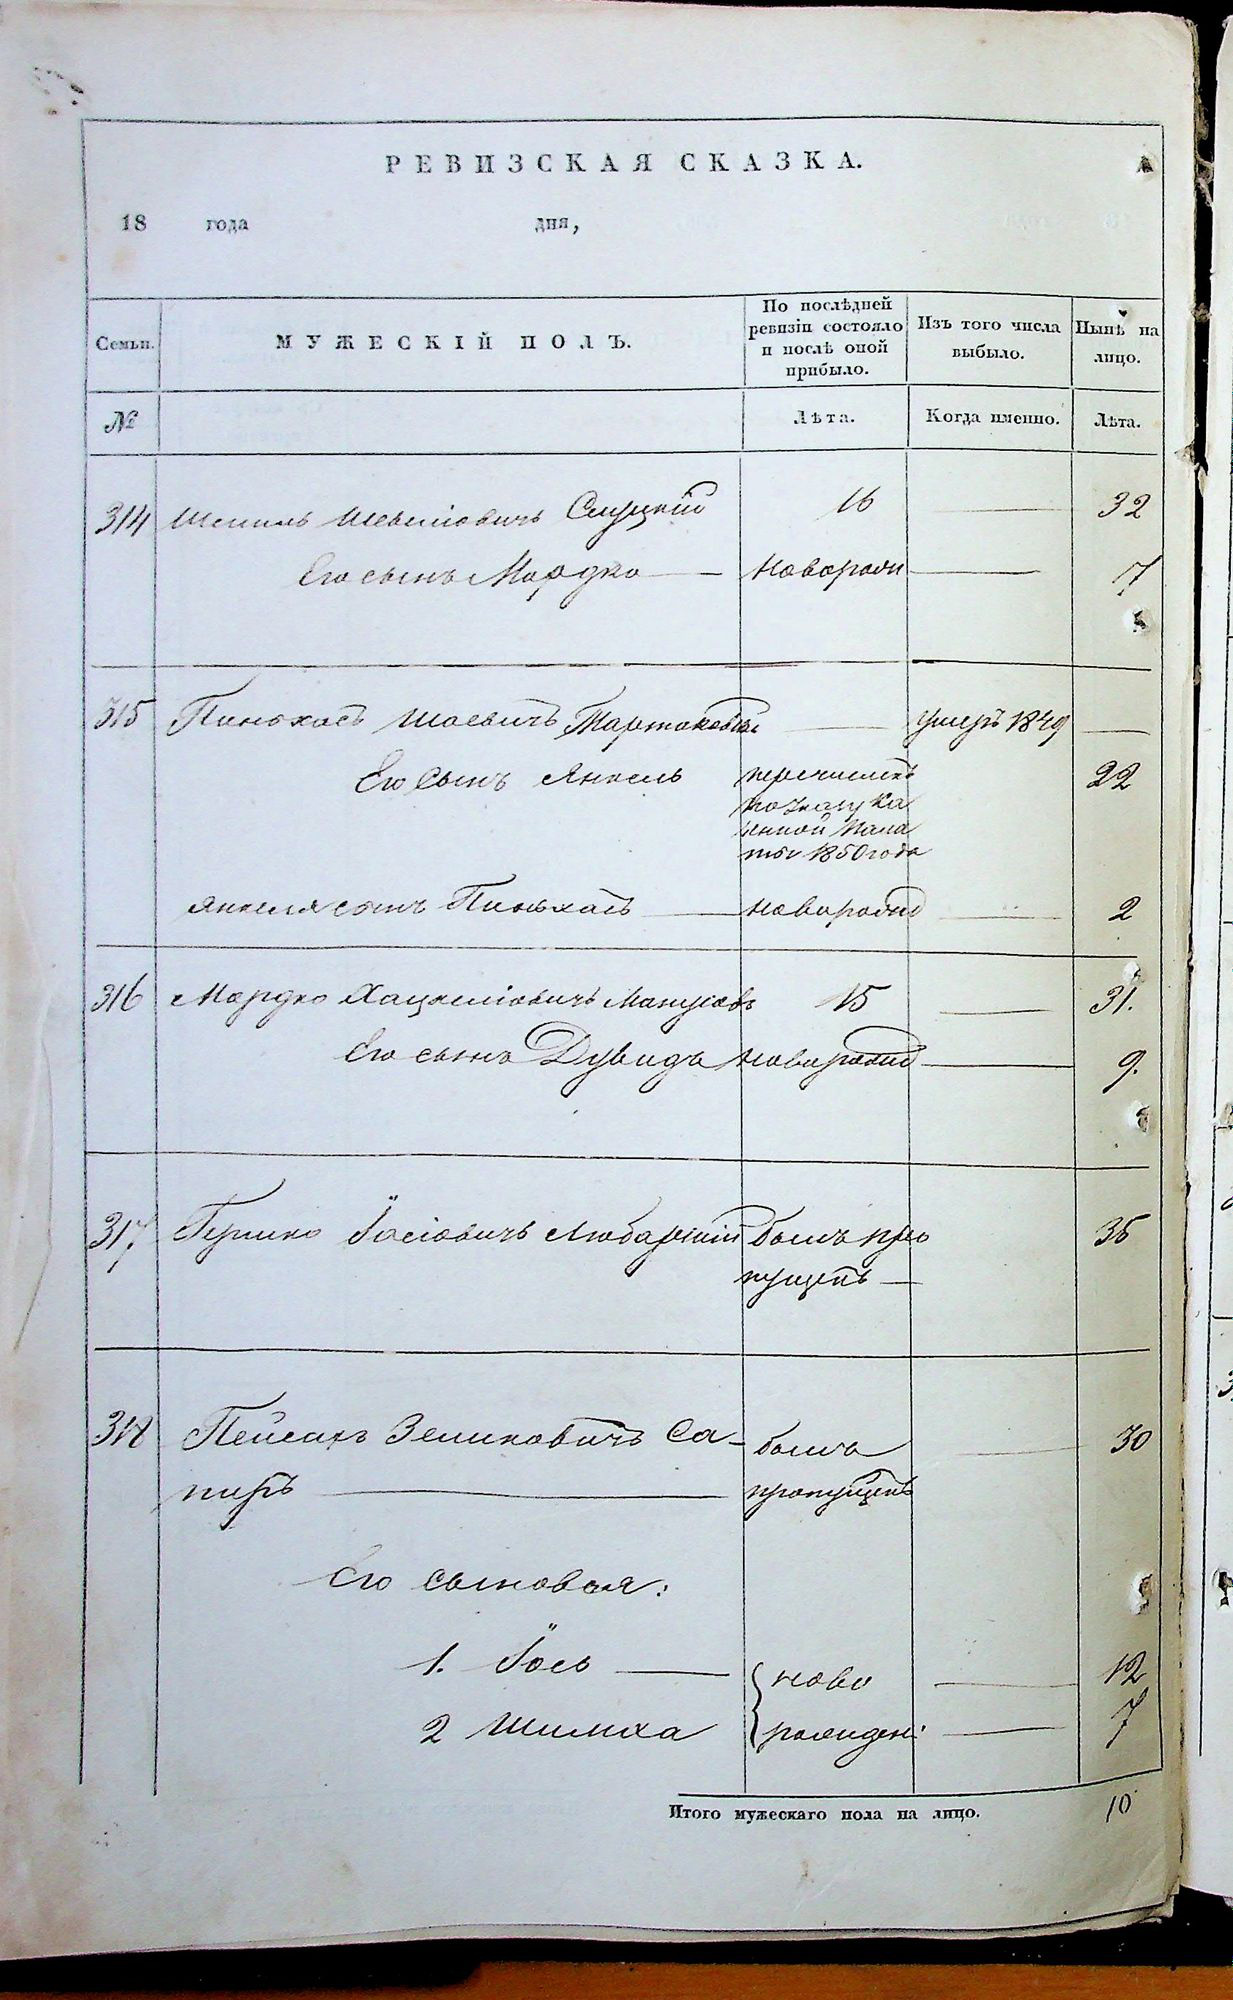 РЕВИЗСКАЯ СКАЗКА.
18 года дня,
Семьи. МУЖЕСКІЙ ПОЛЪ. По послѣдней ревизіи состояло и послѣ оной прибыло. Изъ того числа выбыло. Нынѣ на лицо.
№ Лѣта. Когда именно. Лѣта.
314 Шмиль Слуцкій 16 32
Его сынъ Мордко Новорожд 7
315 Пинхасъ Шаевичъ умеръ 1849
Его Сынъ Янкель перечисленъ 22
по указу Ка
зенной Пала
ты 1850 года
Янкеля сынъ Пинхасъ Новорожд 2
316 Мордко Хацкеліовичъ 15 31.
Его сынъ Дувидъ новорожд 9.
317 Гершко Іосіовичъ Любарскій былъ про 35
пущенъ
318 Пейсахъ Зеликовичъ Са- былъ 30
пиръ пропущенъ
Его сыновья:
1. Іось ново 12
2 Шимха рожденн: 7
Итого мужескаго пола на лицо. 10